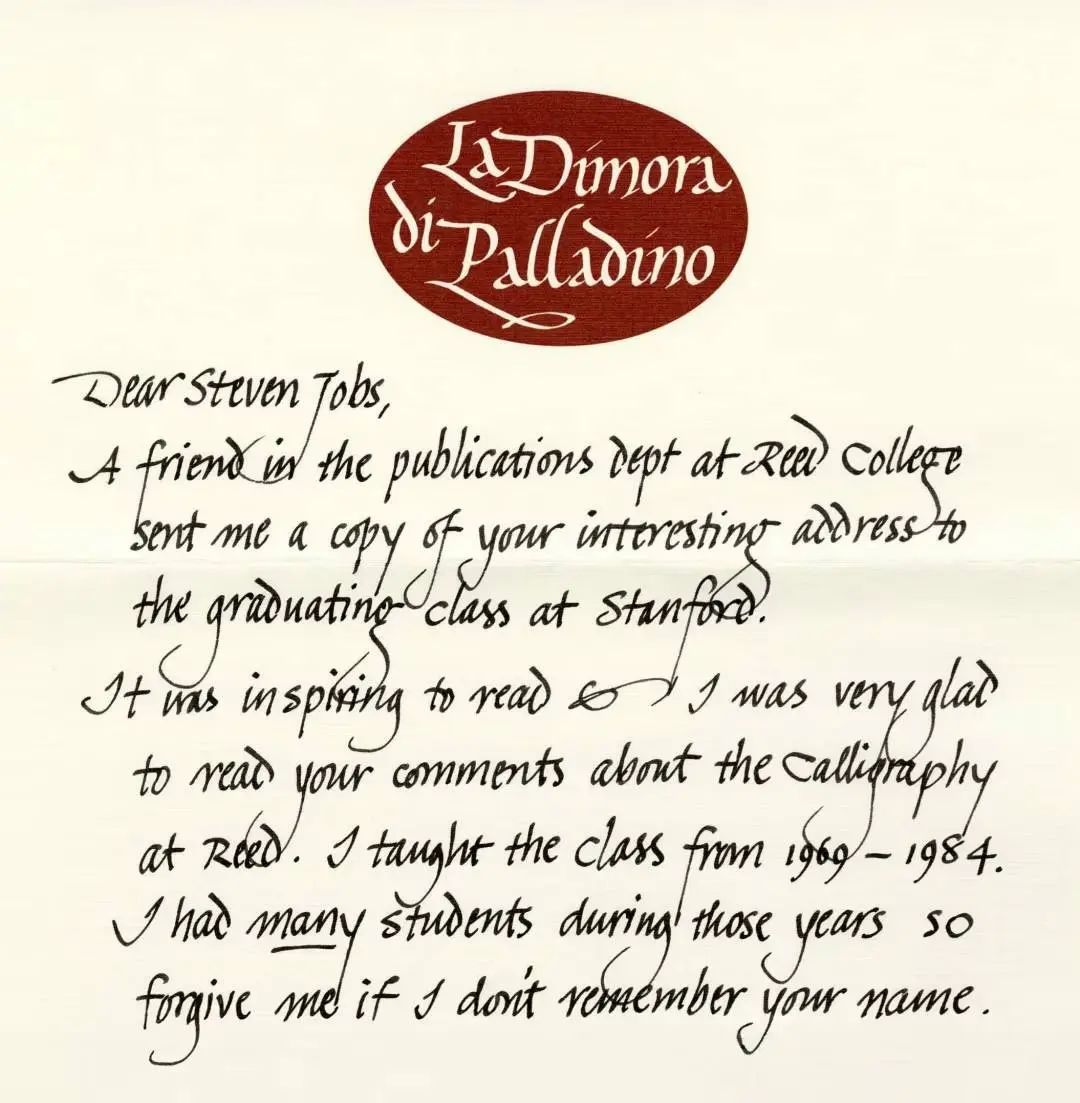 La Dimora
di Palladino
Dear Steven Jobs,
A friend in the publications dept at Reed College
sent me a copy of your interesting address to
the graduating class at Stanford.
It was inspiring to read & I was very glad
to read your comments about the Calligraphy
at Reed. I taught the class from 1969 – 1984.
I had many students during those years so
forgive me if I don't remember your name.